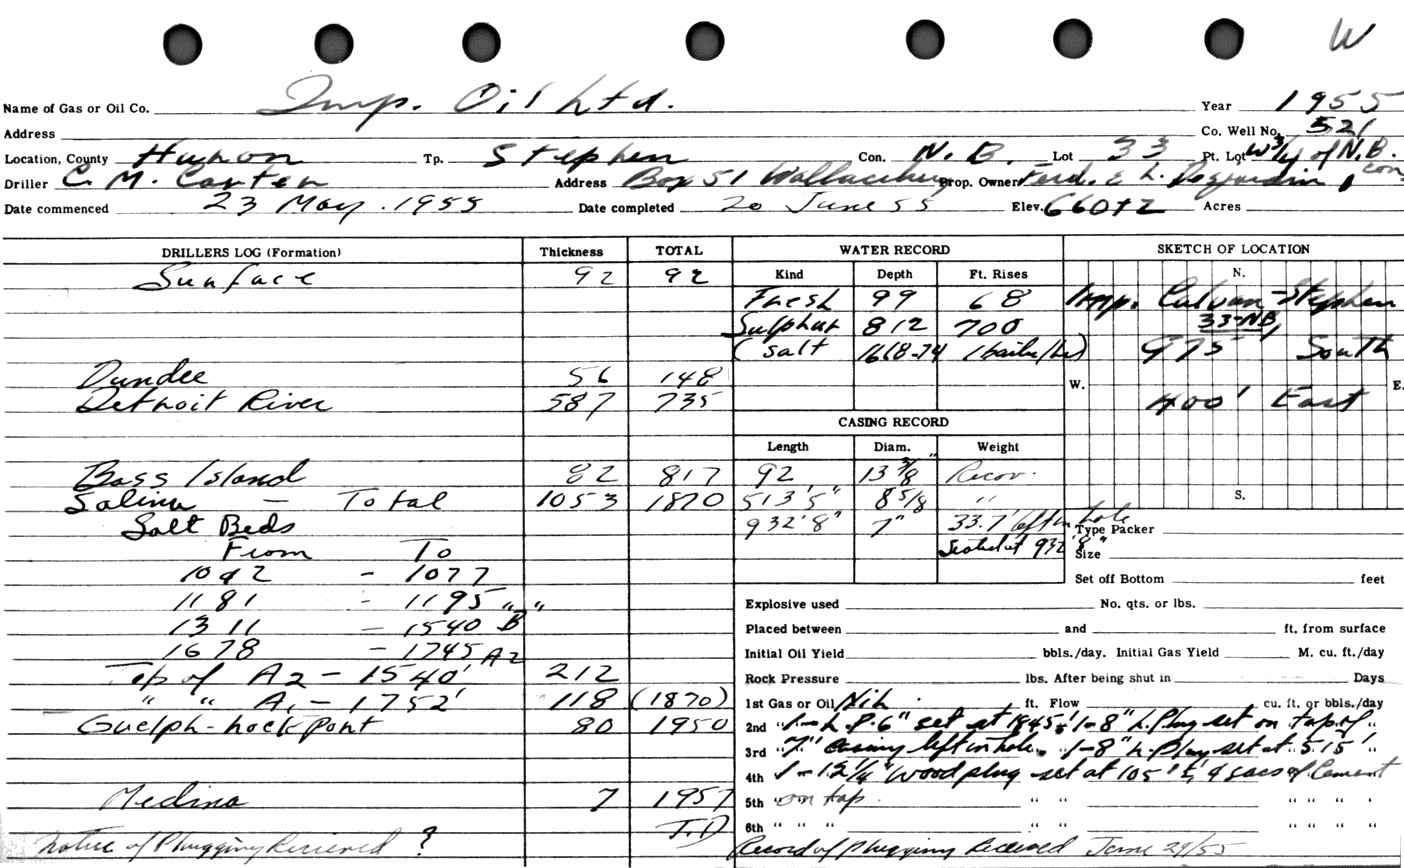 W
Name of Gas or Oil Co. Imp. Oil Ltd. Year 1955
Address Co. Well No. 521
Location, County Huron Tp. Stephen Con. N.B. Lot 33 Pt. Lot W 3/4 of N.B. con
Driller C. M. Carter Address Box 51 Wallaceburg Prop. Owner Ferd. & L. Desjardin
Date commenced 23 May. 1955 Date completed 20 June 55 Elev. 660+2 Acres
DRILLERS LOG (Formation) Thickness TOTAL WATER RECORD SKETCH OF LOCATION
Surface 92 92 Kind Depth Ft. Rises N.
Fresh 99 68 Imp. Culvan-Stephen
Sulphur 812 700 33-NB,
(Salt 1668-74 1 bailer/hr) 975' South
Dundee 56 148 W. E.
Detroit River 587 735 400' East
CASING RECORD
Length Diam. Weight
Bass Island 82 817 92 13 3/8" Recov.
Salina - Total 1053 1870 513'5" 8 5/8 " S.
Salt Beds 932'8" 7" 33.7' left in hole Type Packer
From To Seated at 932'8" Size
1042 - 1077 Set off Bottom feet
1181 - 1195 " " Explosive used No. qts. or lbs.
1311 - 1540 B Placed between and ft. from surface
1678 - 1745 A2 Initial Oil Yield bbls./day. Initial Gas Yield M. cu. ft./day
Top of A2 - 1540' 212 Rock Pressure lbs. After being shut in Days
" " A1 - 1752' 118 (1870) 1st Gas or Oil Nil. ft. Flow cu. ft. or bbls./day
Guelph-Lockport 80 1950 2nd " 1-L.P. 6" set at 1845; 1-8" L. Plug set on top of "
3rd " 7" casing left in hole. 1-8" L. Plug set at 515' "
4th 1-12 1/4" Wood plug set at 105' & 9 sacs of Cement
Medina 7 1957 5th " on top. " " " " " "
T.D 6th " " " " " " " " "
Notice of Plugging Received ? Record of plugging Received June 29/55